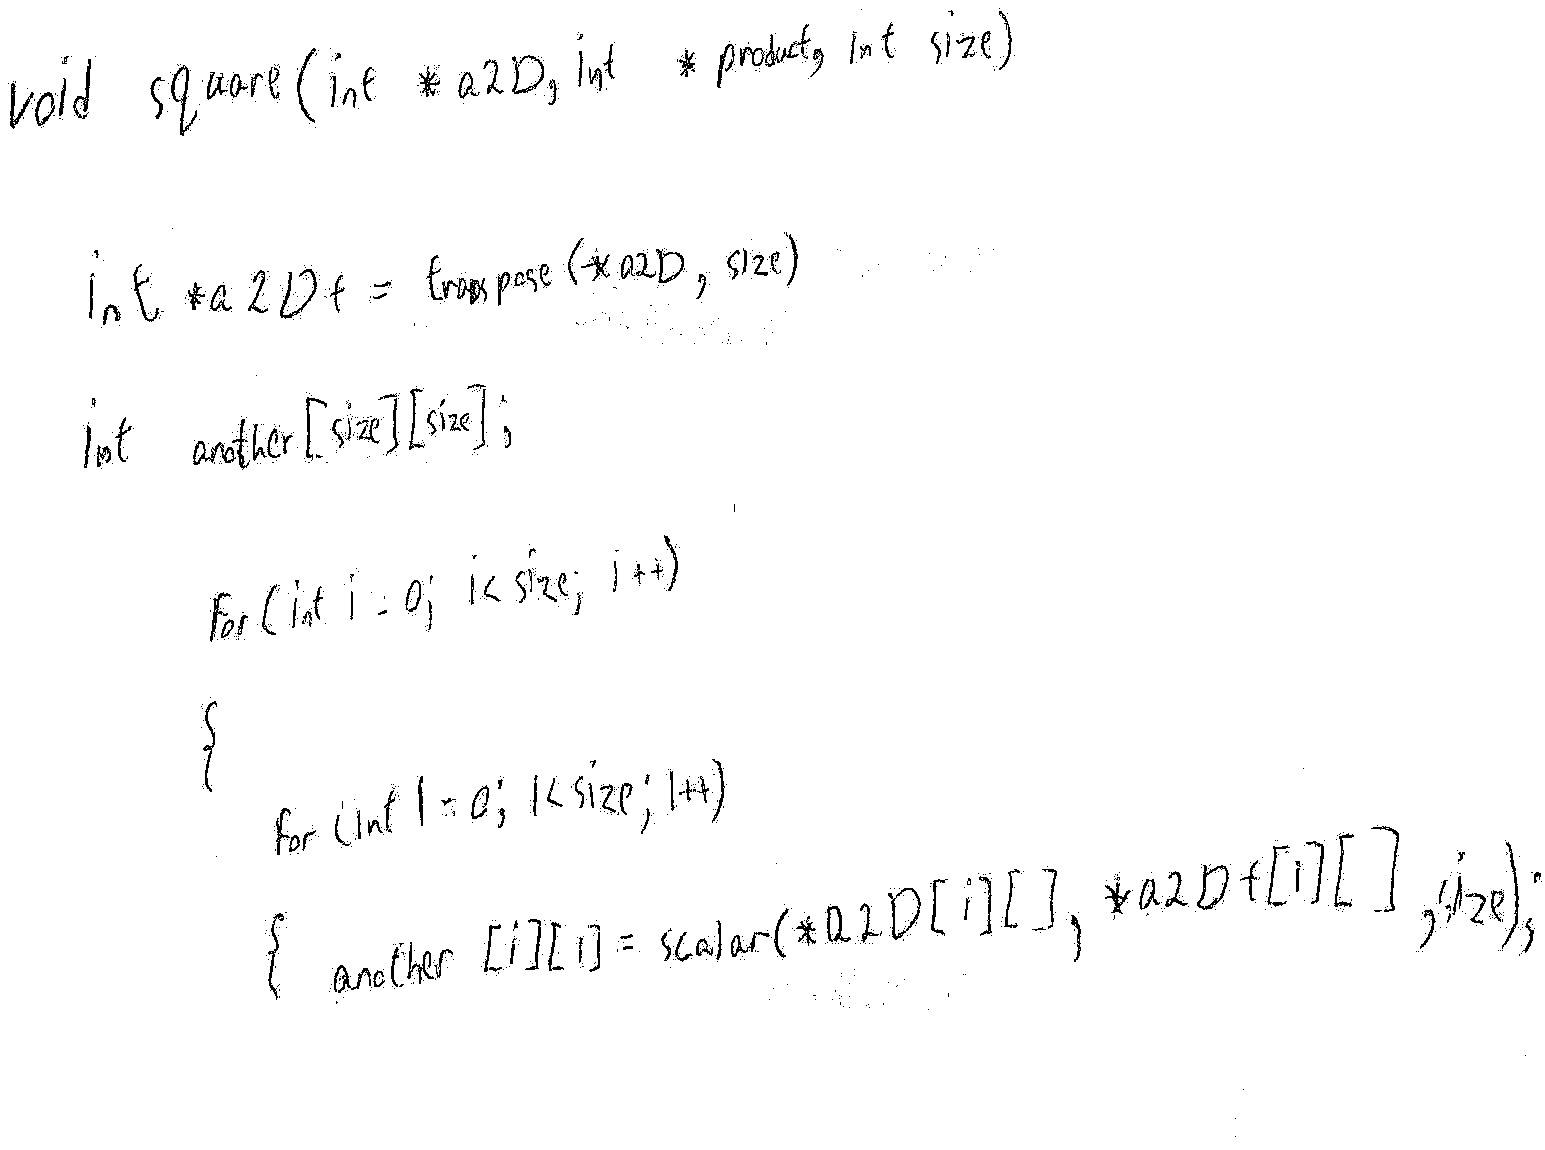 void square(int *a2D, int *product, int size)
int *a2Dt = transpose(*a2D, size)
int another[size][size];
For(int i=0; i<size; i++)
{
for (int l=0; l<size; l++)
{ another [i][l] = scalar(*a2D[i][], *a2Dt[l][], size);